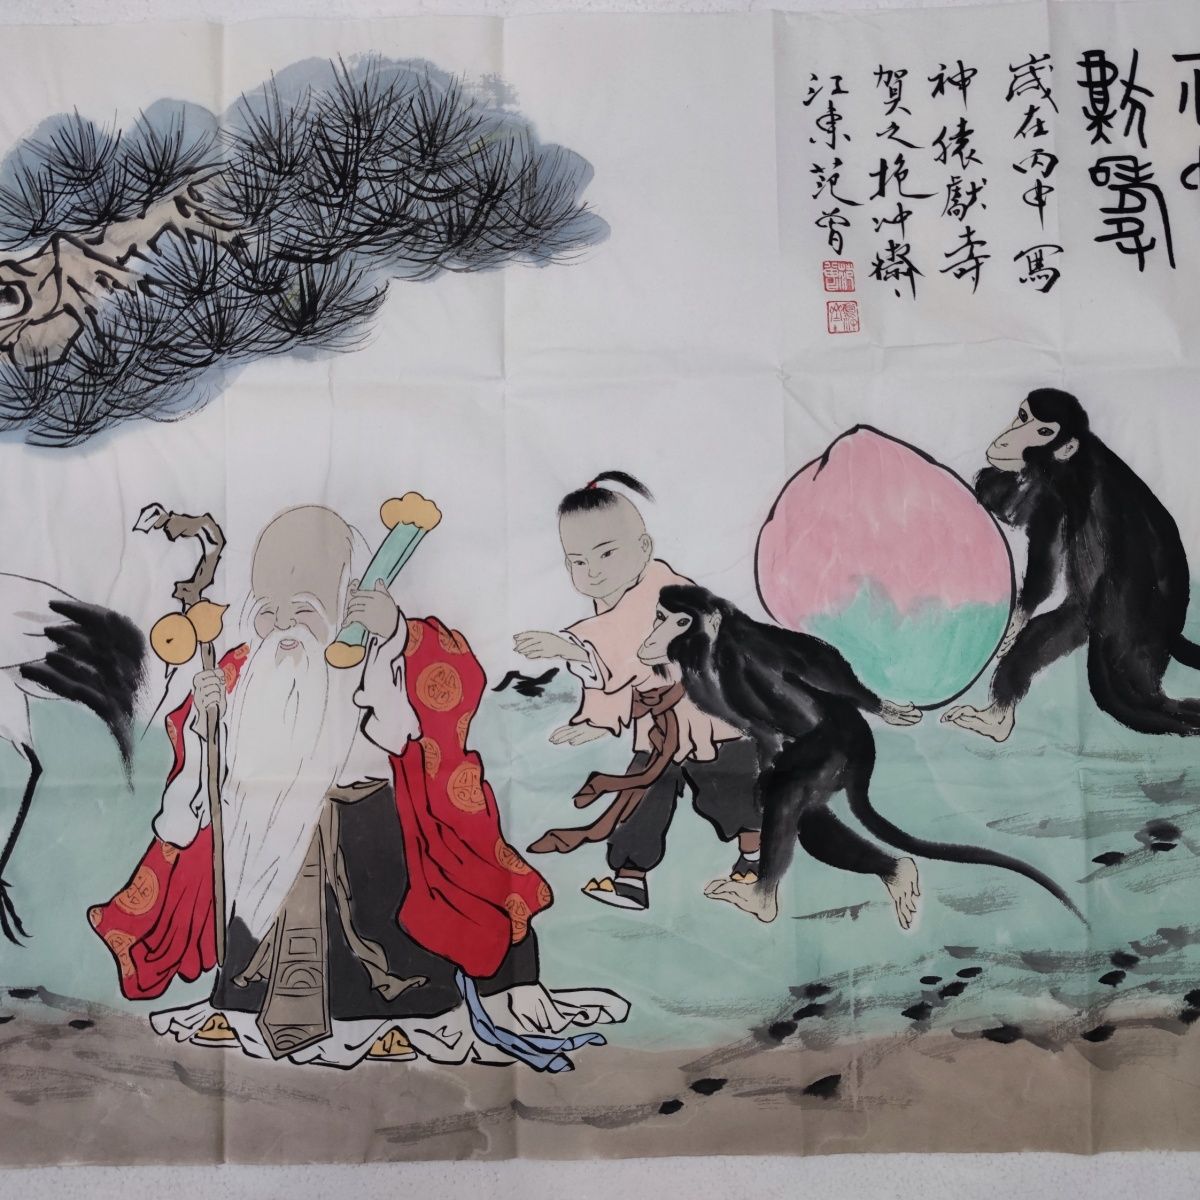 獻壽
歲在丙申寫
神猿獻壽
賀之抱冲齋
江東范曾